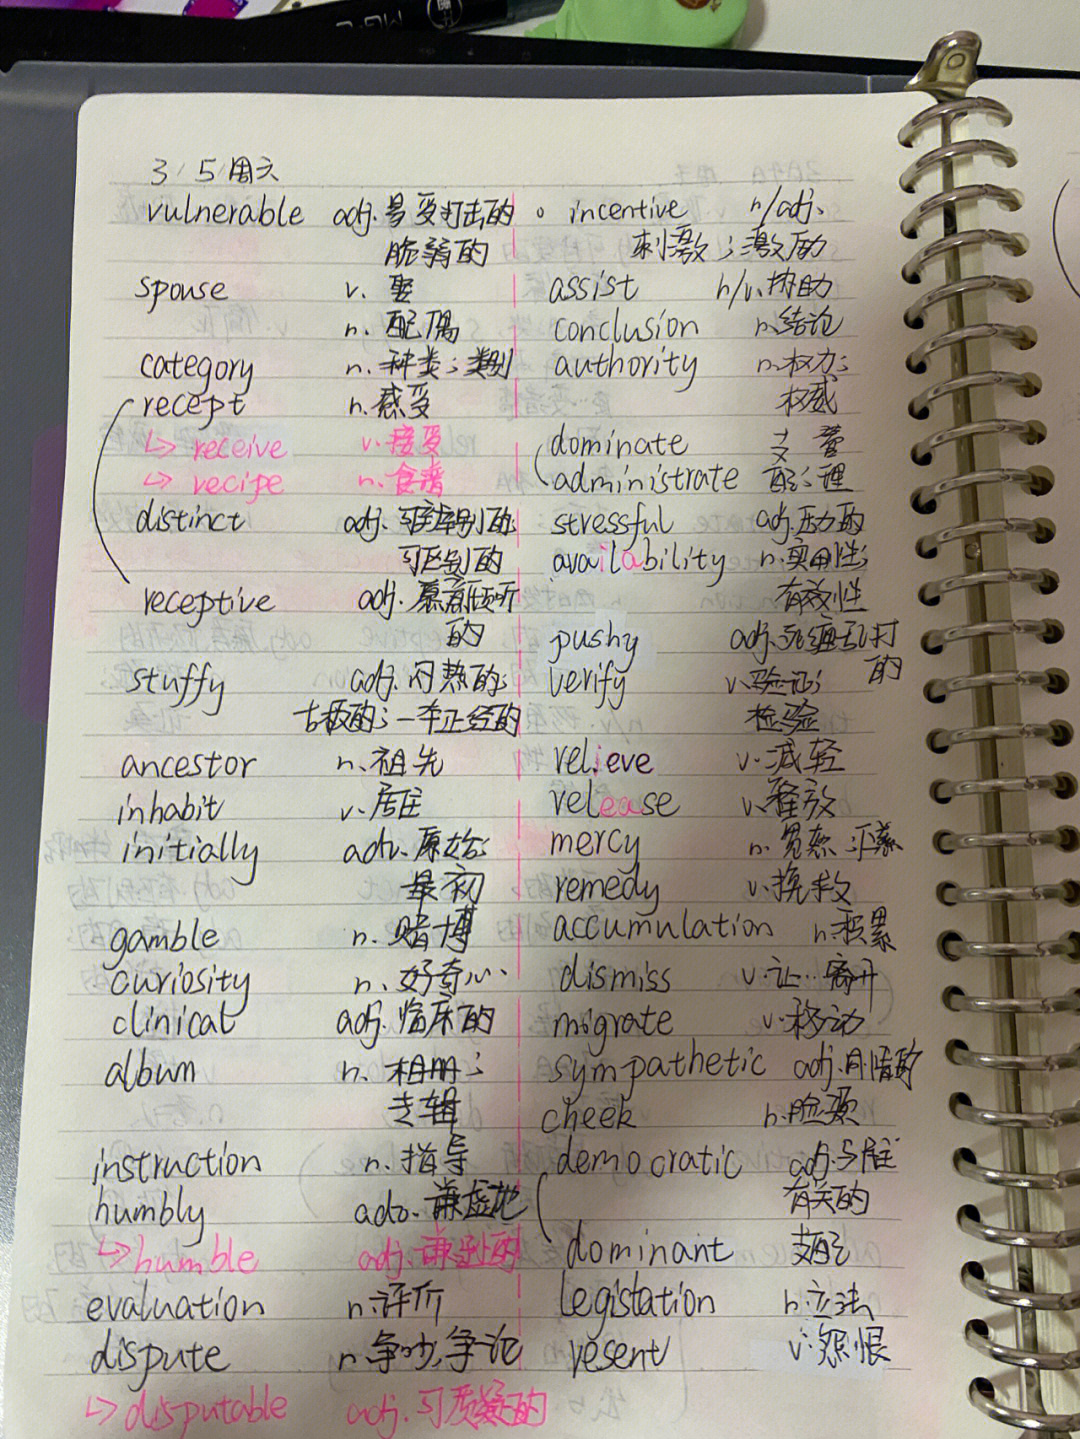 3/5/周六
vulnerable adj.易受打击的
脆弱的
spouse v. 娶
n. 配偶
category n.种类;类别
recept n.感受
↳ receive v.接受
↳ recipe n.食谱
distinct adj. 可辨别的;
可区别的
receptive adj.愿意倾听
的
stuffy adj.闷热的;
古板的;一本正经的
ancestor n.祖先
inhabit v.居住
initially adv.原始;
最初
gamble n.赌博
curiosity n.好奇心
clinical adj.临床的
album n.相册;
专辑
instruction n.指导
humbly adv.谦虚地
↳ humble adj.谦逊的
evaluation n.评价
dispute n.争吵,争论
↳ disputable adj.可质疑的
incentive n/adj.
刺激;激励
assist n/v.协助
conclusion n.结论
authority n.权力;
权威
dominate 支配;
administrate 管理
stressful adj.压力的
availability n.实用性;
有效性
pushy adj.死缠乱打
的
verify v.验证;
检验
relieve v.减轻
release v.释放
mercy n.宽恕;
remedy v.挽救
accumulation n.积累
dismiss v.让…离开
migrate v.移动
sympathetic adj.同情的
cheek n.脸颊
democratic adj.与
有关的
dominant 支配
legistation n.立法
resent v.怨恨